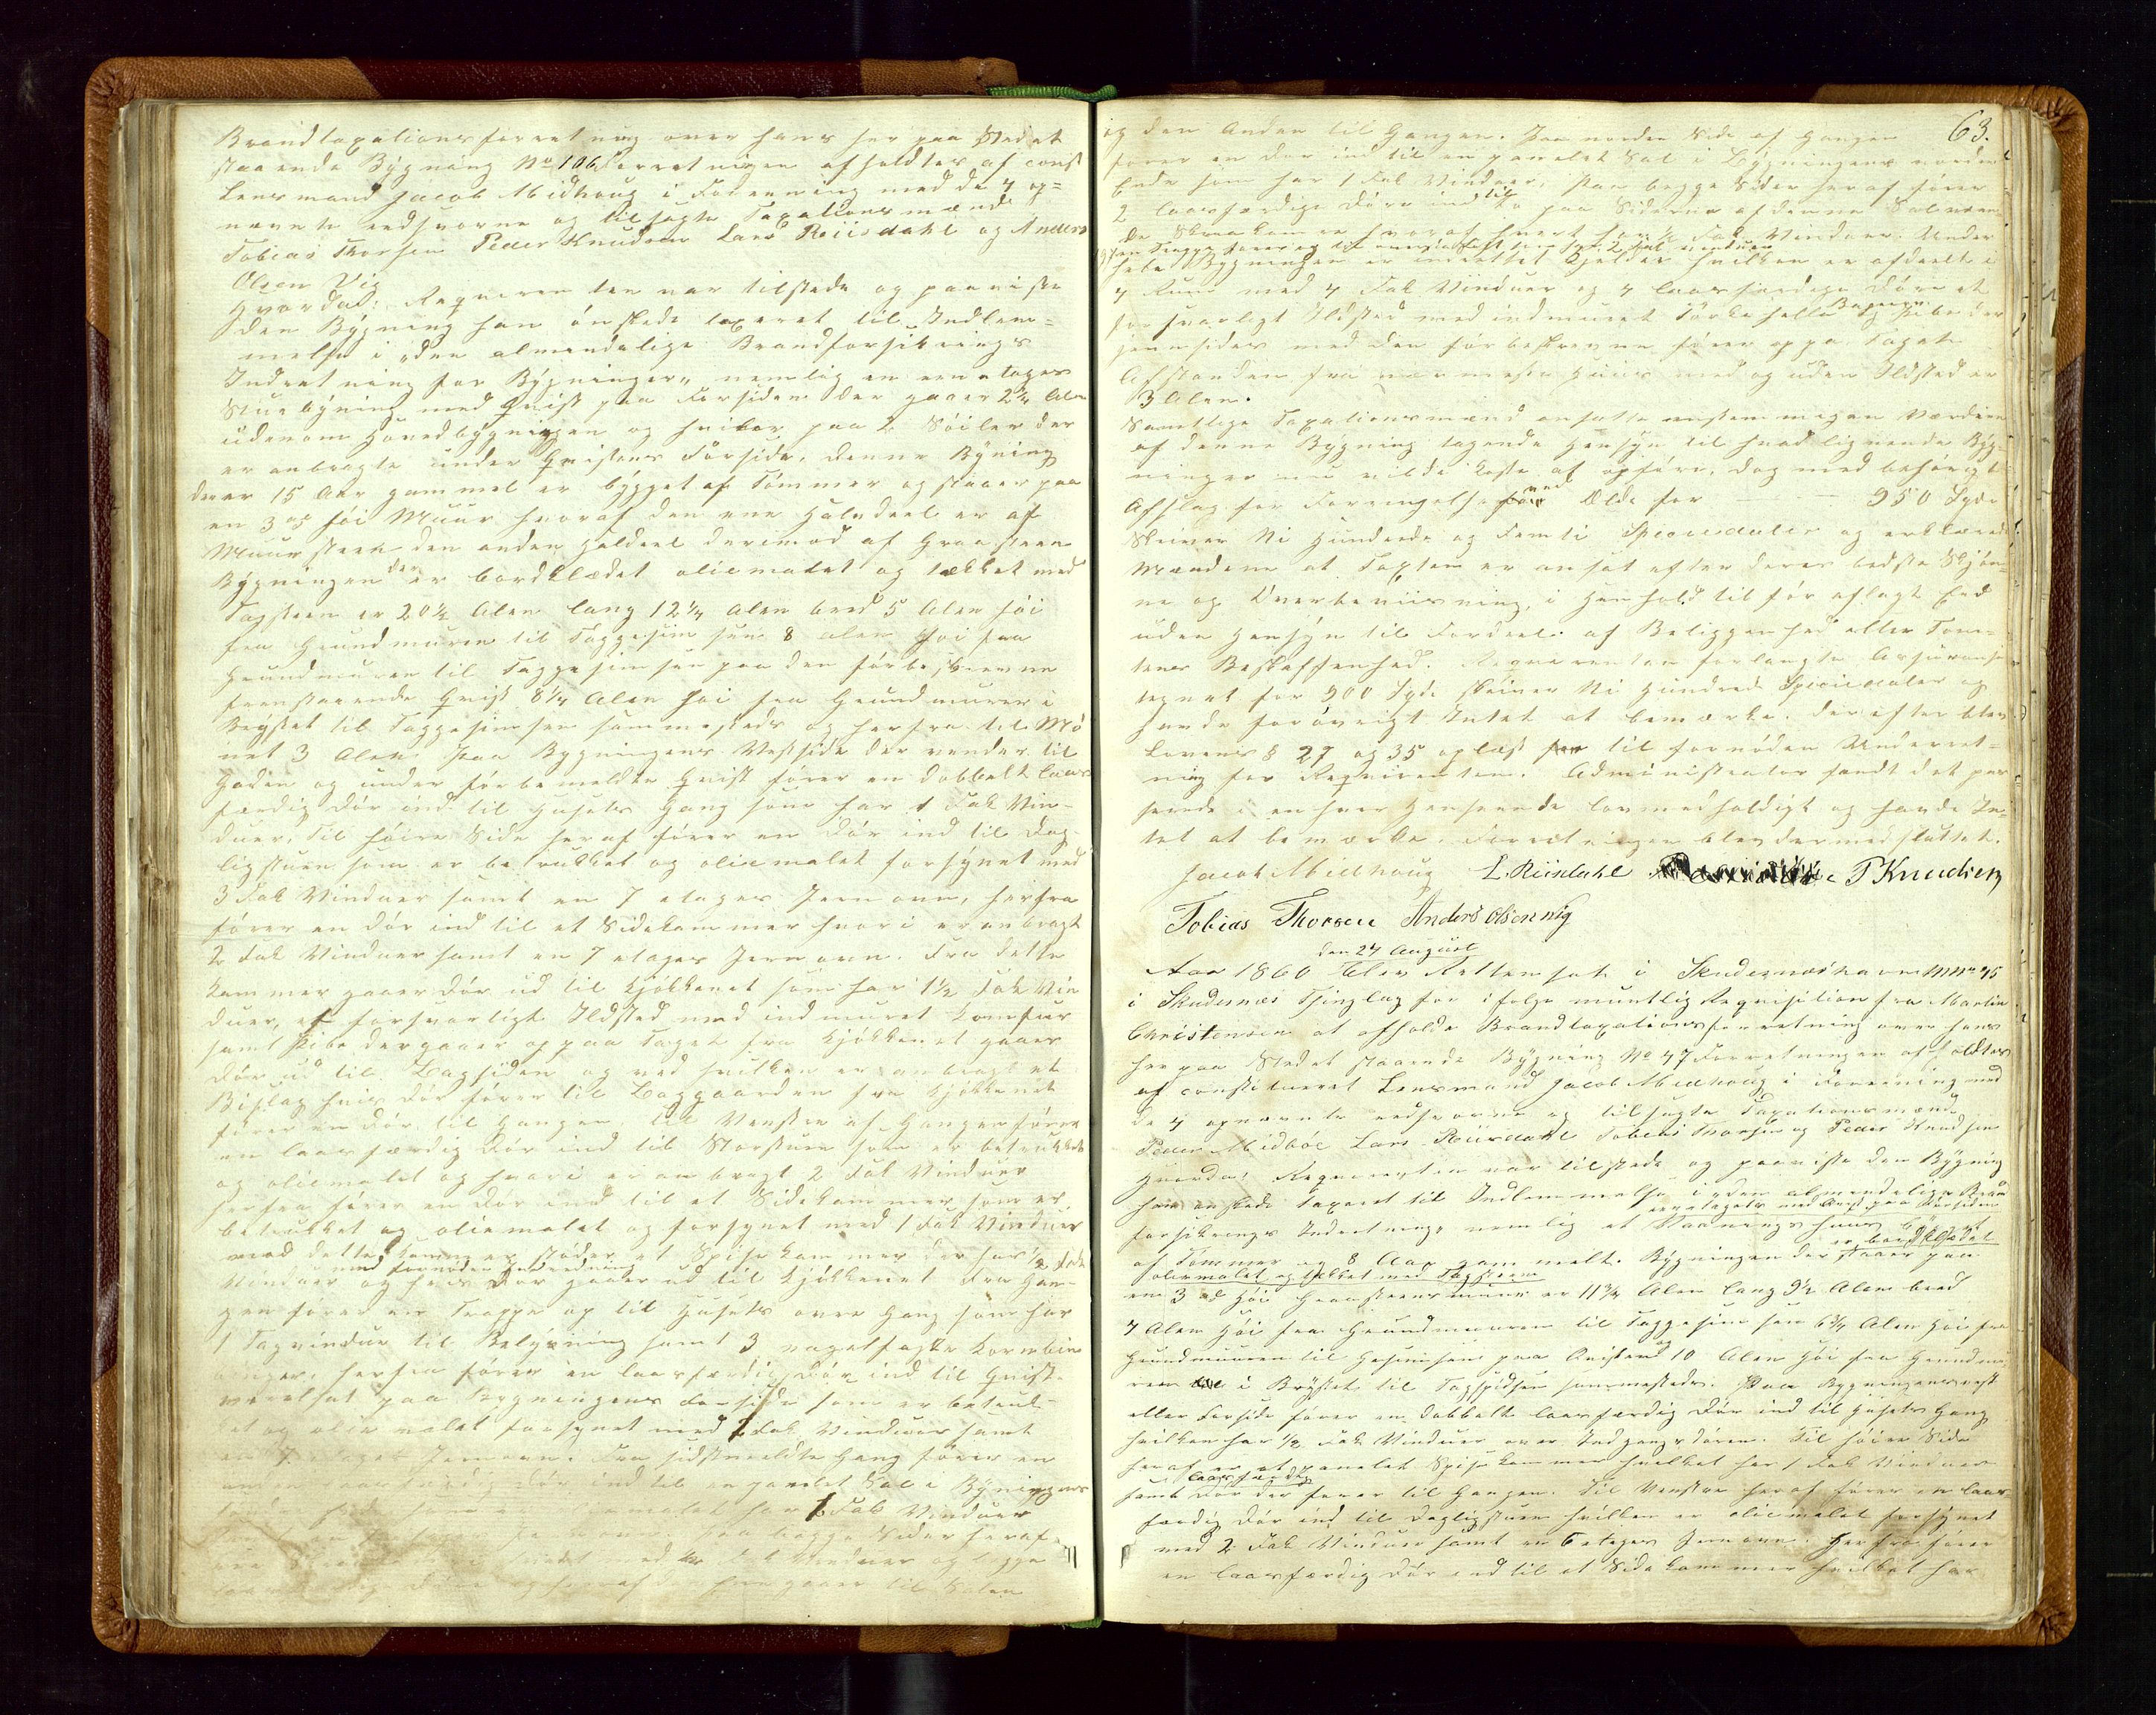 Brandtaxationsforretning over hans her paa Stedet
staaende Bygning No 106. Forretningen afholdtes af const
Lensmand Jacob Midhoug i Forening med de 4 op-
nævnte eedsvorne og tilsagte Taxationsmænd
Tobias Thorsen Peder Knudsen Lars Riisdahl og Anders
Olsen Vig
Hvorda: Reqvirenten var tilstede og paaviste
den Bygning han ønskede taxeret til Indlem-
melse i "den almindelige Brandforsikrings
Indretning for Bygninger" nemlig en een etages
Stuebygning med Qvist paa Forsiden der gaaer 2¼ Alen
udenom Hovedbygningen og hviler paa 2 Søiler der
er anbragte under Qvistens Forside, denne Bygning
der er 15 Aar gammel er bygget af Tømmer og staaer paa
en 3 høi Muur hvoraf den ene Halvdeel er af
Muursteen den anden Haldeel derimod af Graasteen
Bygningen der er bordklædet oliemalet og tækket med
Tagsteen er 20½ Alen lang 12¼ Alen bred 5 Alen høi
fra Grundmuren til Taggesimsen 8 Alen høi fra
Grundmuren til Taggesimsen paa den førbeskrevne
fremstaaende Qvist 8¼ Alen høi fra Grundmuren i
Brystet til Taggesimsen sammesteds og herfra til Mø
net 3 Alen. Paa Bygningens Vestside der vender til
Gaden og under førbemeldte Qvist fører en dobbelt laas
færdig Dør ind til Husets Gang som har 1 Fak Vin-
duer, Til høire Side heraf fører en Dør ind til Dag-
ligstuen som er betrukket og oliemalet forsynet med
3 Fak Vinduer samt en 7 etages Jernovn, herfra
fører en Dør ind til et Sidekammer hvori er anbragt
2 Fak Vinduer samt en 7 etages Jernovn. Fra dette
Kammer gaaer Dør ud til Kjøkkenet som har 1½ Fak Vin
duer, et forsvarligt Ildsted med indmuret Komfur
samt Pibe der gaaer op paa Taget fra Kjøkkenet gaaer
Dør ud til Bagsiden og ved hvilken er anbragt et
Bislag hvis Dør fører til Baggaarden fra Kjøkkenet
fører en Dør til Gangen. Til Venstre af Gangen fører
en laasfærdig Dør ind til Storstuen som er betrukket
og oliemalet og hvori er anbragt 2 Fak Vinduer
herfra fører en Dør ind til et Sidekammer som er
betrukket og oliemalet og forsynet med 1 Fak Vinduer
mod dette Kammer støder et Spisekammer der har ½ Fak
med fornøden Indredning
Vinduer og hvis Dør gaaer ud til Kjøkkenet Fra Gan-
gen fører en Trappe op til Husets øvre Gang som har
1 Tagvindue til Belysning samt 3 nagelfaste
herfra fører en laasfærdig Dør ind til Qvist-
værelset paa Bygningens Forside som er betruk-
ket og oliemalet forsynet med 2 Fak Vinduer samt
en 7 etages Jernovn. Fra sidstmeldte Gang fører en
anden laasfærdig Dør ind til en panelet Sal i Bygningens
har 1 Fak Vinduer
Paa begge Sider heraf
med Fak Vinduer og begge
gaaer til Salen
63.
og den Anden til Gangen. Paa nordre Side af Gangen
fører en Dør ind til en panelet Sal i Bygningens nordre
Ende som har 1 Fak Vinduer, Paa begge Sider heraf fører
2 laasfærdige Døre ind til to paa Siderne af denne Sal
de Skraakamre hvoraf hvert har ½ Fak Vinduer. Under
hele Bygningen er indrettet Kjelder hvilken er afdeelt i
4 Rum med 4 Fak Vinduer og 4 laasfærdige Døre et
forsvarligt Ildsted med indmuret Tørkehelle Bagerovn og Pibe der
med den førbeskrevne fører op paa Taget
Afstanden fra nærmeste Huus med og uden Ildsted er
3 Alen.
Samtlige Taxationsmænd ansatte eenstemmigen Værdien
af denne Bygning tagende Hensyn til hvad lignende Byg-
ninger nu vilde koste at opføre, dog med behørigt
Afslag for Forringelse ved Ælde for — — 950 Spdr
Skriver Ni Hundrede og Femti Speciedaler og erklærede
Mændene at Taxten er ansat efter deres bedste Skjøn-
ne og Overbeviisning, i Henhold til før aflagt Eed
uden Hensyn til Fordeele af Beliggenhed eller Tom-
tens Beskaffenhed. Reqvirenten forlangte Assurance
tegnet for 900 Spdr skriver Ni Hundrede Speciedaler og
havde forøvrigt Intet at bemærke. Derefter blev
Lovens § 27 og 35 oplæst til fornøden Underret-
ning for Reqvirenten. Administrator fandt det pas
serede i enhver Henseende lovmedholdigt og havde In-
tet at bemærke. Forretningen blev dermed sluttet.
Jacob Midhoug L. Riisdahl P Knudsen
Tobias Thorsen Anders Olsen Vig
den 24 August
Aar 1860 blev Retten sat i Skudesnæshavn MNo 45
i Skudesnæs Thinglag for ifølge muntlig Reqvisition fra Martin
Christensen at afholde Brandtaxationsforretning over hans
her paa Stedet staaende Bygning No 47 Forretningen afholdtes
af constitueret Lensmand Jacob Midhoug i Forening med
de 4 opnævnte eedsvorne og tilsagte Taxationsmænd
Peder Midbøe Lars Riisdahl Tobias Thorsen og Peder Knudsen
Hvorda: Reqvirenten var tilstede og paaviste den Bygning
han ønskede taxeret til Indlemmelse i "den almindelige Brand
forsikrings Indretning" nemlig et Vaaningshuus bygget
eenetages med Qvist paa Forsiden
af Tømmer og 8 Aar gammelt. Bygningen der staaer paa
er bordklædet
oliemalet og tækket med Tagsteen
en 3 høi Graasteensmuur er 11¾ Alen lang 9½ Alen bred
4 Alen høi fra Grundmuren til Taggesimsen 6¾ Alen høi fra
Grundmuren til Gesimsen paa Qvisten og 10 Alen høi fra Grundmu
ren i Brystet til Tagspidsen sammesteds. Paa Bygningens vest
eller Forside fører en dobbelt laasfærdig Dør ind til Husets Gang
hvilken har ½ Fak Vinduer over Indgangsdøren. Til høire Side
heraf er et panelet Spisekammer hvilket har 1 Fak Vinduer
laasfærdig
samt Dør der fører til Gangen. Til Venstre heraf fører en laas-
færdig Dør ind til Dagligstuen hvilken er oliemalet forsynet
med 2 Fak Vinduer samt en 6 etages Jernovn. Herfra fører
en laasfærdig Dør ind til et Sidekammer hvilket har